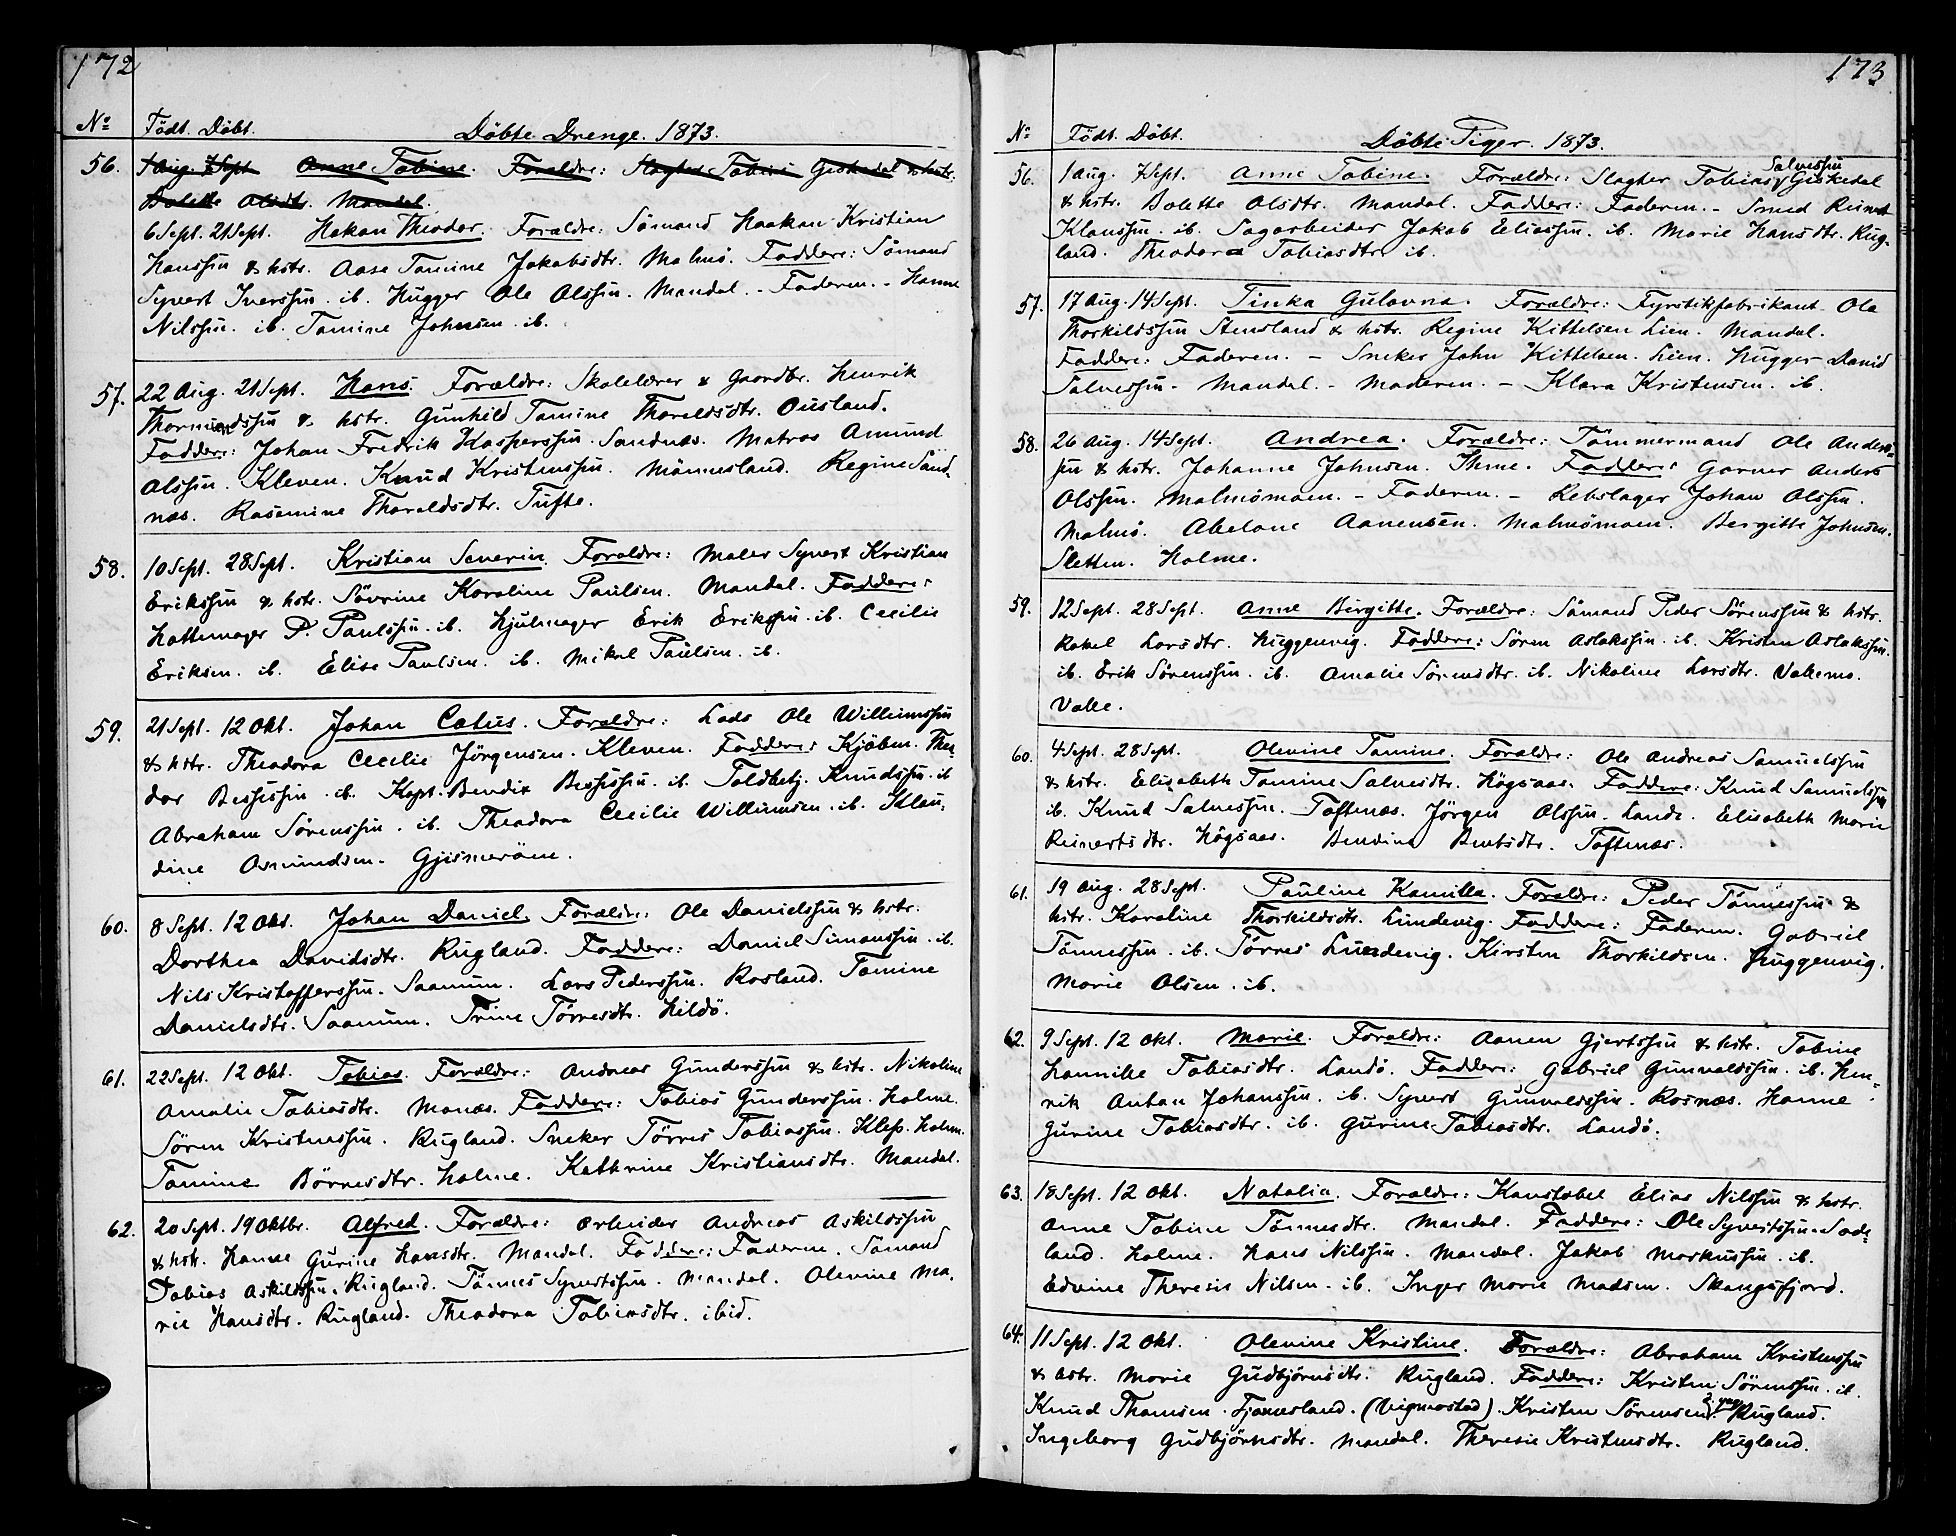 172
No Födt. Döbt. Döbte Drenge. 1873.
56. 1 Aug. 7 Sept. Anne Tobine. Forældre: Slagter Tobias Geskedal & hstr.
Bolette Olsdtr. Mandal.
6 Sept. 21 Sept. Hakan Theodor. Forældre: Sömand Haakan Kristian
Hanssøn & hstr. Aase Tomine Jakobsdtr. Malmö. Faddere: Sömand
Syvert Iverssøn. ib. Hugger Ole Olssøn. Mandal. - Faderen. - Hanne
Nilssøn. ib. Tomine Johnsen. ib.
57. 22 Aug. 21 Sept. Hans. Forældre: Skolelærer & Gaardbr. Henrik
Thormundssøn & hstr. Gunhild Tomine Thoreldsdtr. Ousland.
Faddere: Johan Fredrik Kasperssøn. Sandnæs. Matros Amund
Olssøn. Kleven. Knud Kristenssøn. Mönnesland. Regine Sand-
næs. Rasemine Thoreldsdtr. Tufte.
58. 10 Sept. 28 Sept. Kristian Severin. Forældre: Maler Syvert Kristian
Erikssøn & hstr. Sövrine Karoline Paulsen. Mandal. Faddere:
Hattemager P. Paulssøn. ib. Hjulmager Erik Erikssøn. ib. Cecilie
Eriksen. ib. Elise Paulsen. ib. Mikal Paulsen. ib.
59. 21 Sept. 12 Okt. Johan Catus. Forældre: Lods Ole Willumssøn
& hstr. Theodora Cecilie Jörgensen. Kleven. Faddere: Kjöbm. Theo-
dor Bessessøn. ib. Kapt. Bendix Bessessøn. ib. Toldbetj. Knudssøn. ib
Abraham Sörenssøn. ib. Theodora Cecilie Willumsen. ib. Klau-
dine Osmundsen. Gjismeröen.
60. 8 Sept. 12 Okt. Johan Daniel. Forældre: Ole Danielssøn & hstr.
Dorthea Davidsdtr. Rugland. Faddere: Daniel Simonssøn. ib.
Nils Kristofferssøn. Saanum. Lars Pederssøn. Rosland. Tomine
Danielsdtr. Saanum. Trine Törresdtr. Hildö.
61. 22 Sept. 12 Okt. Tobias. Forældre: Andreas Gunderssøn & hstr. Nikoline
Amalie Tobiasdtr. Monæs. Faddere: Tobias Gunderssøn. Holme.
Sören Kristenssøn. Rugland. Sneker Törres Tobiassøn. Klep. Holm.
Tomine Börresdtr. Holme. Kathrine Kristiansdtr. Mandal.
62. 20 Sept. 19 Oktbr. Alfred. Forældre: Arbeider Andreas Askildssøn
& hstr. Hanne Gurine Hansdtr. Mandal. Faddere: Faderen. Sömand
Tobias Askildssøn. Rugland. Tönnes Syvertssøn. Mandal. Olevine Ma-
rie Hansdtr. Rugland. Theodora Tobiasdtr. ibid.
173
No Födt. Döbt. Döbte Piger. 1873.
56. 1 Aug. 7 Sept. Anne Tobine. Forældre: Slagter Tobias Salvessøn Geskedal
& hstr. Bolette Olsdtr. Mandal. Faddere: Faderen. - Smed Reinert
Klaussøn. ib. Sagarbeider Jakob Eliassøn. ib. Marie Hansdtr. Rug-
land. Theodora Tobiasdtr. ib.
57. 17 Aug. 14 Sept. Tinka Gulovna. Forældre: Fyrstikfabrikant Ole
Thorkildssøn Stensland & hstr. Regine Kittelsen Lien. Mandal.
Faddere: Faderen. - Sneker John Kittelsen. Lien. Hugger David
Salvessøn. Mandal. - Moderen. - Klara Kristensen. ib.
58. 26 Aug. 14 Sept. Andrea. Forældre: Tömmermand Ole Anders-
søn & hstr. Johanne Johnsen. Ihme. Faddere: Garver Anders
Olssøn. Malmömoen. - Faderen. - Rebslager Johan Olssøn.
Malmö. Abelone Aanensen. Malmömoen. Bergitte Johnsen.
Sletten. Holme.
59. 12 Sept. 28 Sept. Anne Birgitte. Forældre: Sömand Peder Sörenssøn & hstr.
Rakel Larsdtr. Huggenvig. Faddere: Sören Aslakssøn. ib. Kristen Aslakssøn.
ib. Erik Sörenssøn. ib. Amalie Sörensdtr. ib. Nikoline Larsdtr. Vallemo.
Valle.
60. 4 Sept. 28 Sept. Olevine Tomine. Forældre: Ole Andreas Samuelssøn
& hstr. Elisabeth Tomine Salvesdtr. Högsaas. Faddere: Knud Samuelssøn
ib. Knud Salvessøn. Toftenæs. Jörgen Olssøn. Lande. Elisabeth Marie
Reinertsdtr. Högsaas. Bendine Berntsdtr. Toftenæs.
61. 19 Aug. 28 Sept. Pauline Kamilla. Forældre: Peder Tönnessøn &
hstr. Karoline Thorkildsdtr. Lundevig. Faddere: Faderen. Gabriel
Tönnessøn. ib. Törres Lundevig. Kirsten Thorkildsen. Huggenvig.
Marie Olsen. ib.
62. 9 Sept. 12 Okt. Marie. Forældre: Aanen Gjertssøn & hstr. Tobine
Lannike Tobiasdtr. Landö. Faddere: Gabriel Gunvaldssøn. ib. Hen-
rik Anton Johanssøn. ib. Syvert Gunvaldssøn. Rosnæs. Hanne
Gurine Tobiasdtr. ib. Gurine Tobiasdtr. Landö.
63. 18 Sept. 12 Okt. Natalia. Forældre: Konstabel Elias Nilssøn & hstr.
Anne Tobine Tönnesdtr. Mandal. Faddere: Ole Syvertssøn. Sode-
land. Holme. Hans Nilssøn. Mandal. Jakob Markussøn. ib.
Edvine Therese Nilsen. ib. Inger Marie Madsen. Skangsfjord.
64. 11 Sept. 12 Okt. Olevine Kristine. Forældre: Abraham Kristenssøn
& hstr. Marie Gudbjörnsdtr. Rugland. Faddere: Kristen Sörenssøn. ib.
Knud Thomsen. Fjærmesland. (Vigmostad). Kristen Sörensen. Rugland.
Ingeborg Gudbjörnsdtr. Mandal. Therese Kristensdtr. Rugland.